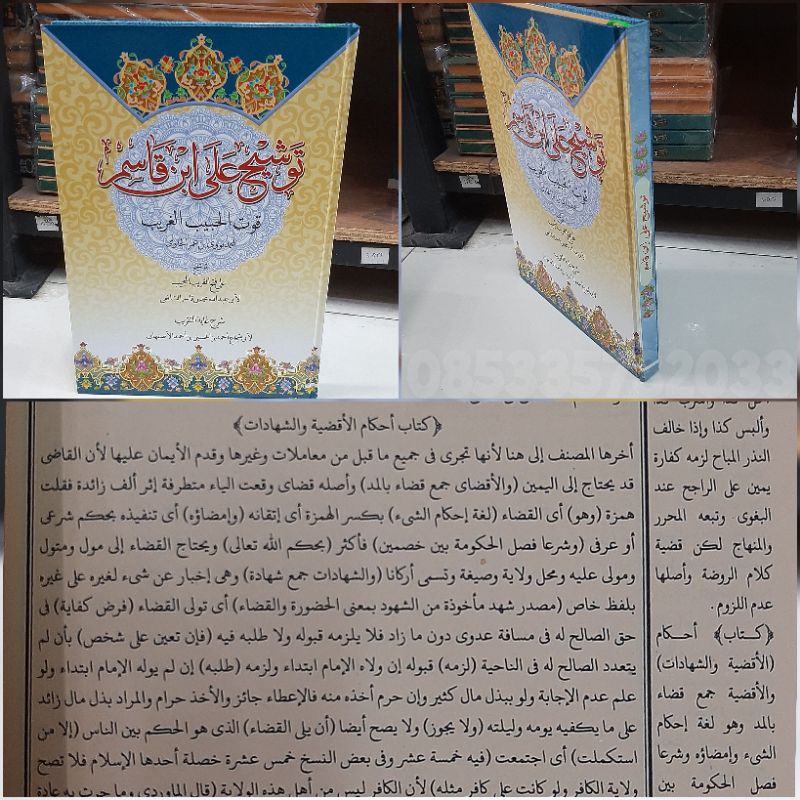 توشيح على ابن قاسم
قوت الحبيب الغريب
توشيح على ابن قاسم
085835752033
﴿كتاب أحكام الأقضية والشهادات﴾
أخرها المصنف إلى هنا لأنها تجرى فى جميع ما قبل من معاملات وغيرها وقدم الأيمان عليها لأن القاضى
قد يحتاج إلى اليمين (والأقضاى جمع قضاء بالمد) وأصله قضاى وقعت الياء متطرفة إثر ألف زائدة فقلت
همزة (وهو) أى القضاء (لغة إحكام الشىء) بكسر الهمزة أى إتقانه (وإمضاؤه) أى تنفيذه بحكم شرعى
أو عرفى (وشرعا فصل الحكومة بين خصمين) فأكثر (بحكم الله تعالى) ويحتاج القضاء إلى مول ومتول
ومولى عليه ومحل ولاية وصيغة وتسمى أركانا (والشهادات جمع شهادة) وهى إخبار عن شىء لغيره على غيره
بلفظ خاص (مصدر شهد مأخوذة من الشهود بمعنى الحضورة والقضاء) أى تولى القضاء (فرض كفاية) فى
حق الصالح له فى مسافة عدوى دون ما زاد فلا يلزمه قبوله ولا طلبه فيه (فإن تعين على شخص) بأن لم
يتعدد الصالح له فى الناحية (لزمه) قبوله إن ولاه الإمام ابتداء ولزمه (طلبه) إن لم يوله الإمام ابتداء ولو
علم عدم الإجابة ولو ببذل مال كثير وإن حرم أخذه منه فالإعطاء جائز والأخذ حرام والمراد بذل مال زائد
على ما يكفيه يومه وليلته (ولا يجوز) ولا يصح أيضا (أن يلى القضاء) الذى هو الحكم بين الناس (إلا من
استكملت) أى اجتمعت (فيه خمسة عشر وفى بعض النسخ خمس عشرة خصلة أحدها الإسلام فلا تصح
ولاية الكافر ولو كانت على كافر مثله) لأن الكافر ليس من أهل هذه الولاية (قال الماوردى وما جرت به عادة
وألبس كذا وإذا خالف
النذر المباح لزمه كفارة
يمين على الراجح عند
البغوى وتبعه المحرر
والمنهاج لكن قضية
كلام الروضة وأصلها
عدم اللزوم.
﴿كتاب﴾ أحكام
(الأقضية والشهادات)
والأقضية جمع قضاء
بالمد وهو لغة إحكام
الشىء وإمضاؤه وشرعا
فصل الحكومة بين